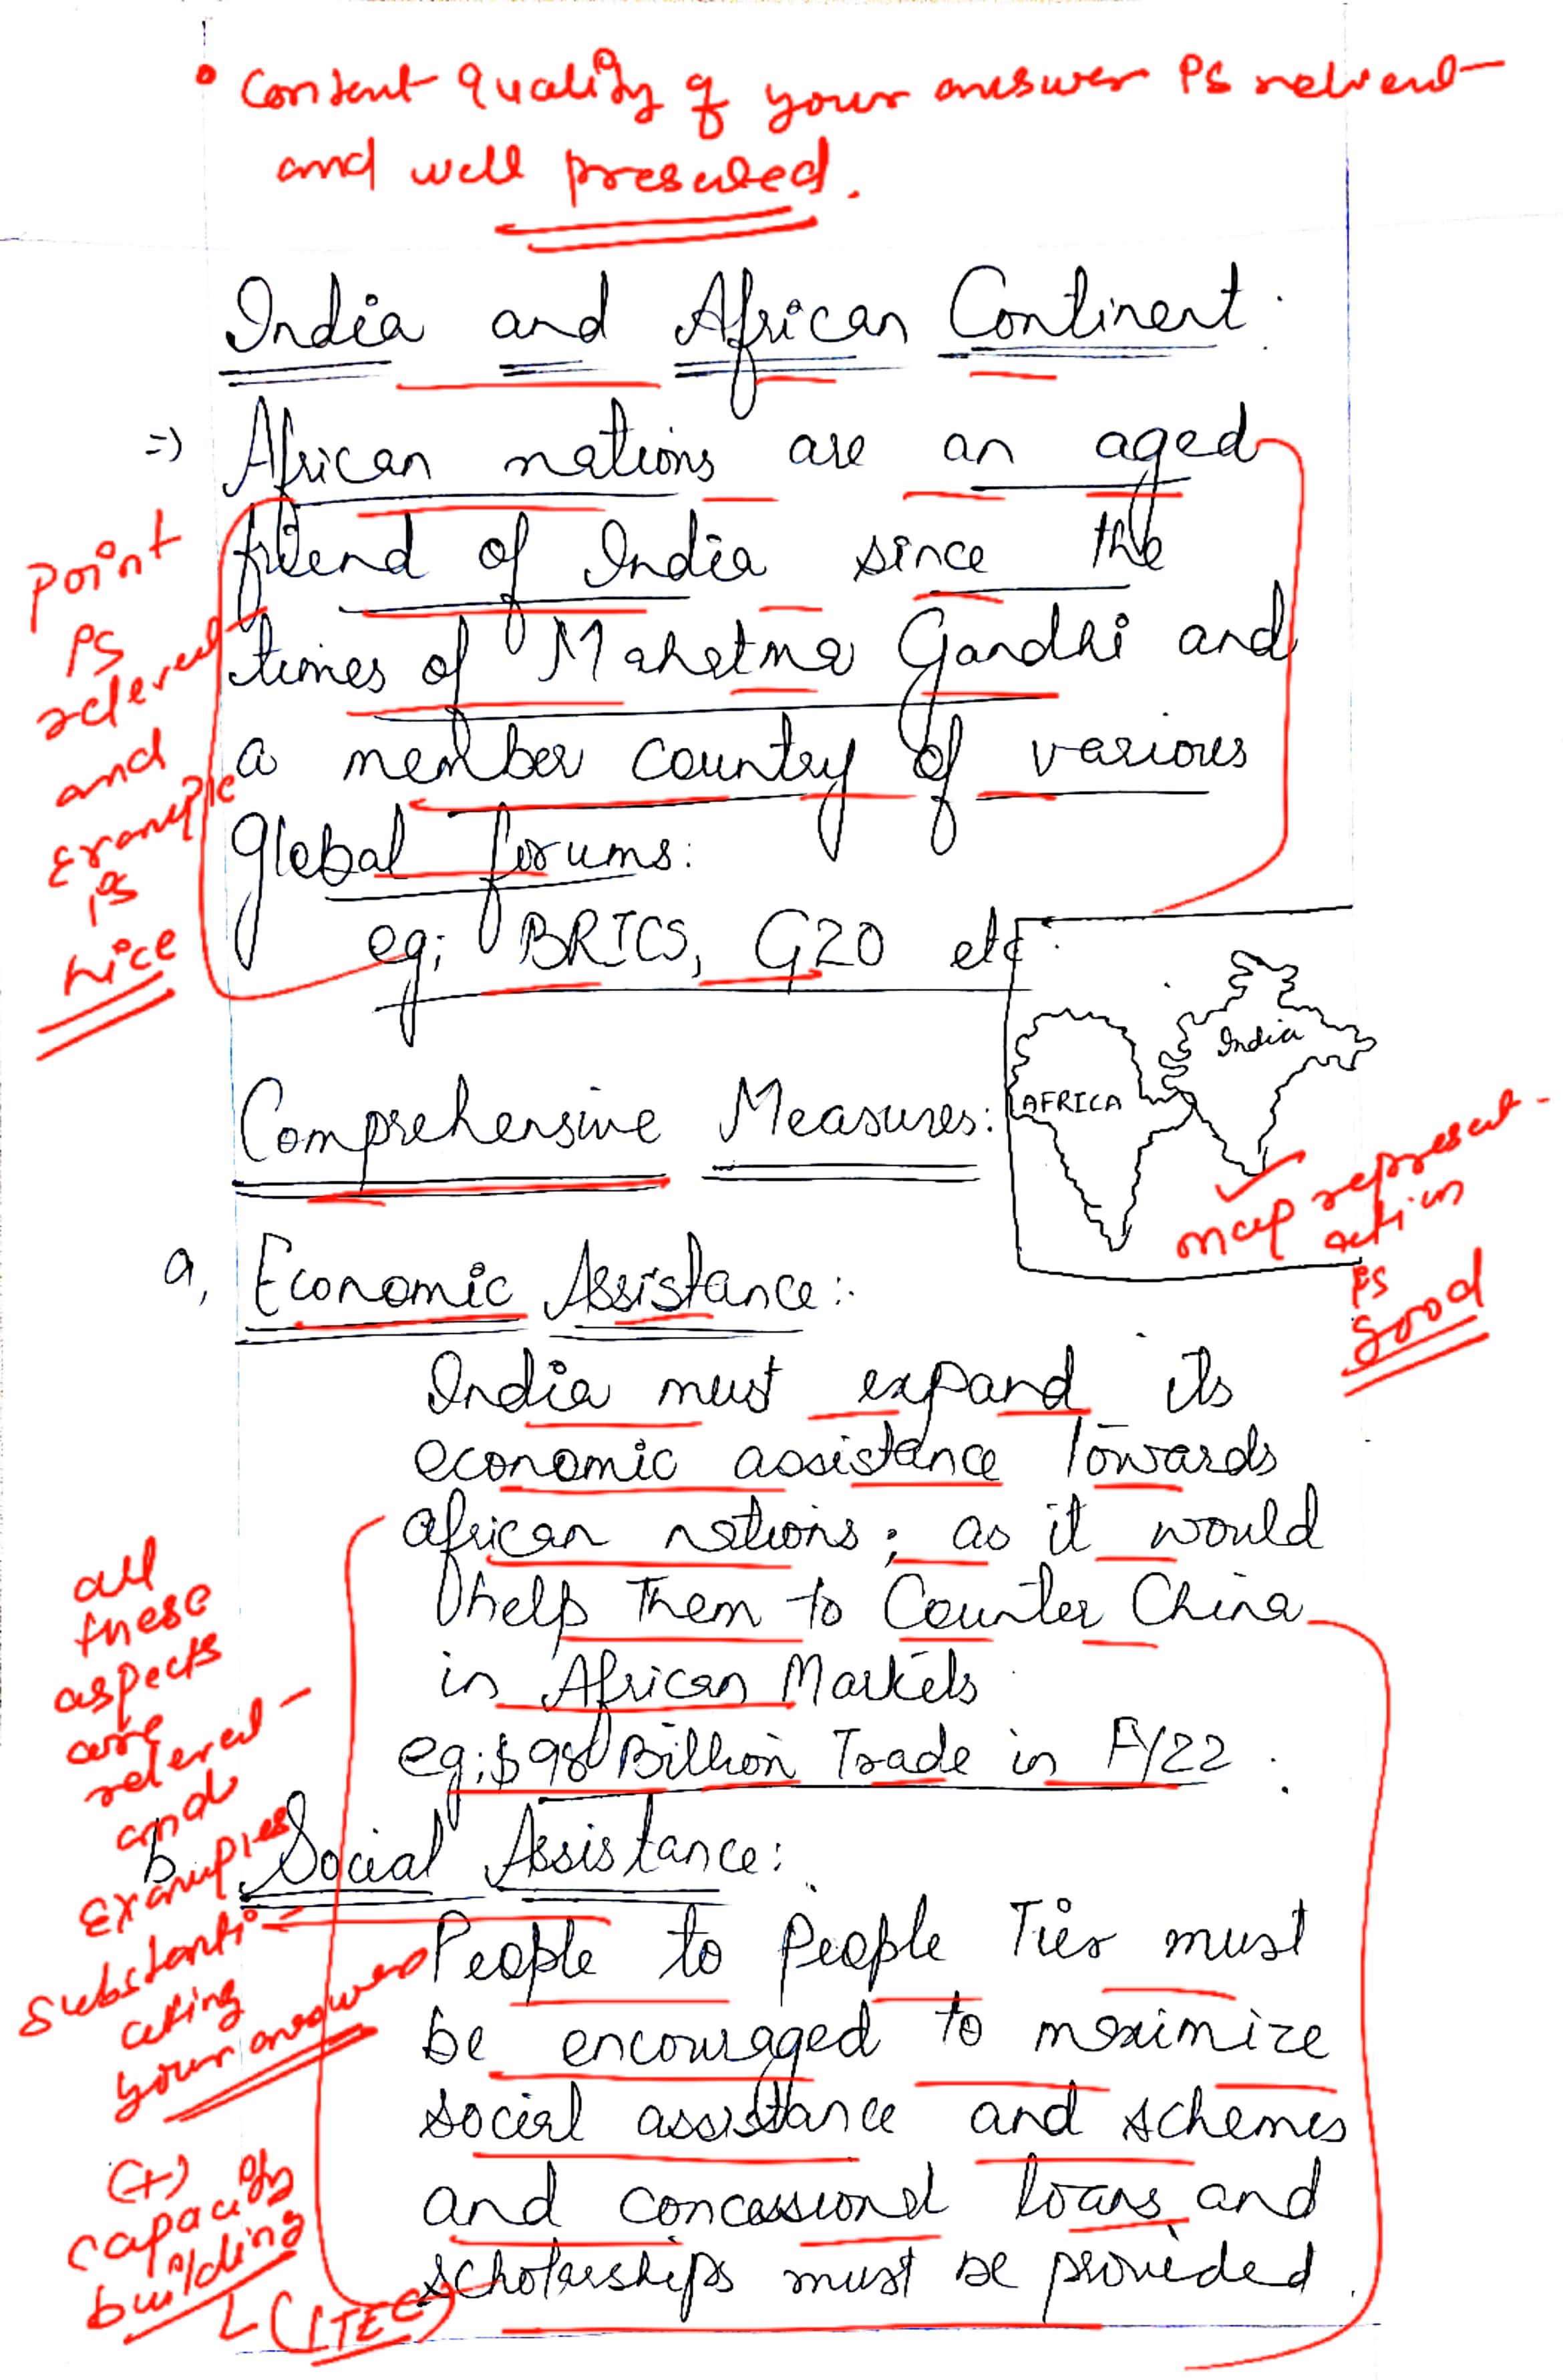 • Content quality of your answer is relevant
and well presented.
India and African Continent:
=> African nations are an aged
friend of India since the
times of Mahatma Gandhi and
a member country of various
global forums:
eg; BRICS, G20 etc.
point
is
relevant
and
Example
is
nice
AFRICA
India
map represent-
ation
is
Good
Comprehensive Measures:
a, Economic Assistance:
India must expand its
economic assistance towards
african nations; as it would
help them to Counter China
in African Markets.
eg; $98 Billion Trade in FY22.
all
these
aspects
are
relevant
and
Examples
substanti
ating
your answer
b. Social Assistance:
People to People Ties must
be encouraged to maximize
social assistance and schemes
and concessional loans and
scholarships must be provided.
(+)
capacity
building
(ITEC)